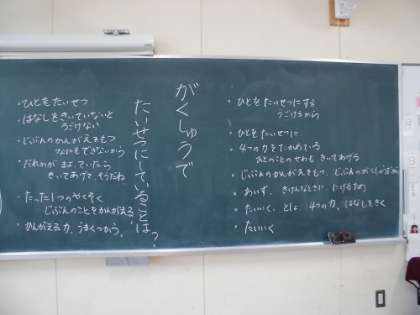 がくしゅうで
たいせつにしていることは?
・ひとをたいせつにする
うごけるから
・ひとをたいせつに
・4つの力をたかめている
ひとのことのせわも きいてあげる
・じぶんのかんがえをもつ、じぶんの
・あいず、きけんなさいに にげるため
・たいいく、としょ、4つの力、はなしをきく
・たいいく
・ひとをたいせつ
・はなしをきいていないと
うごけない
・じぶんのかんがえをもつ
なにもできないから
・だれかが まよっていたら
きいてあげて、そうだね
・たった1つのやくそく
じぶんのことをかんがえる
・かんがえる力、うまくつかう。